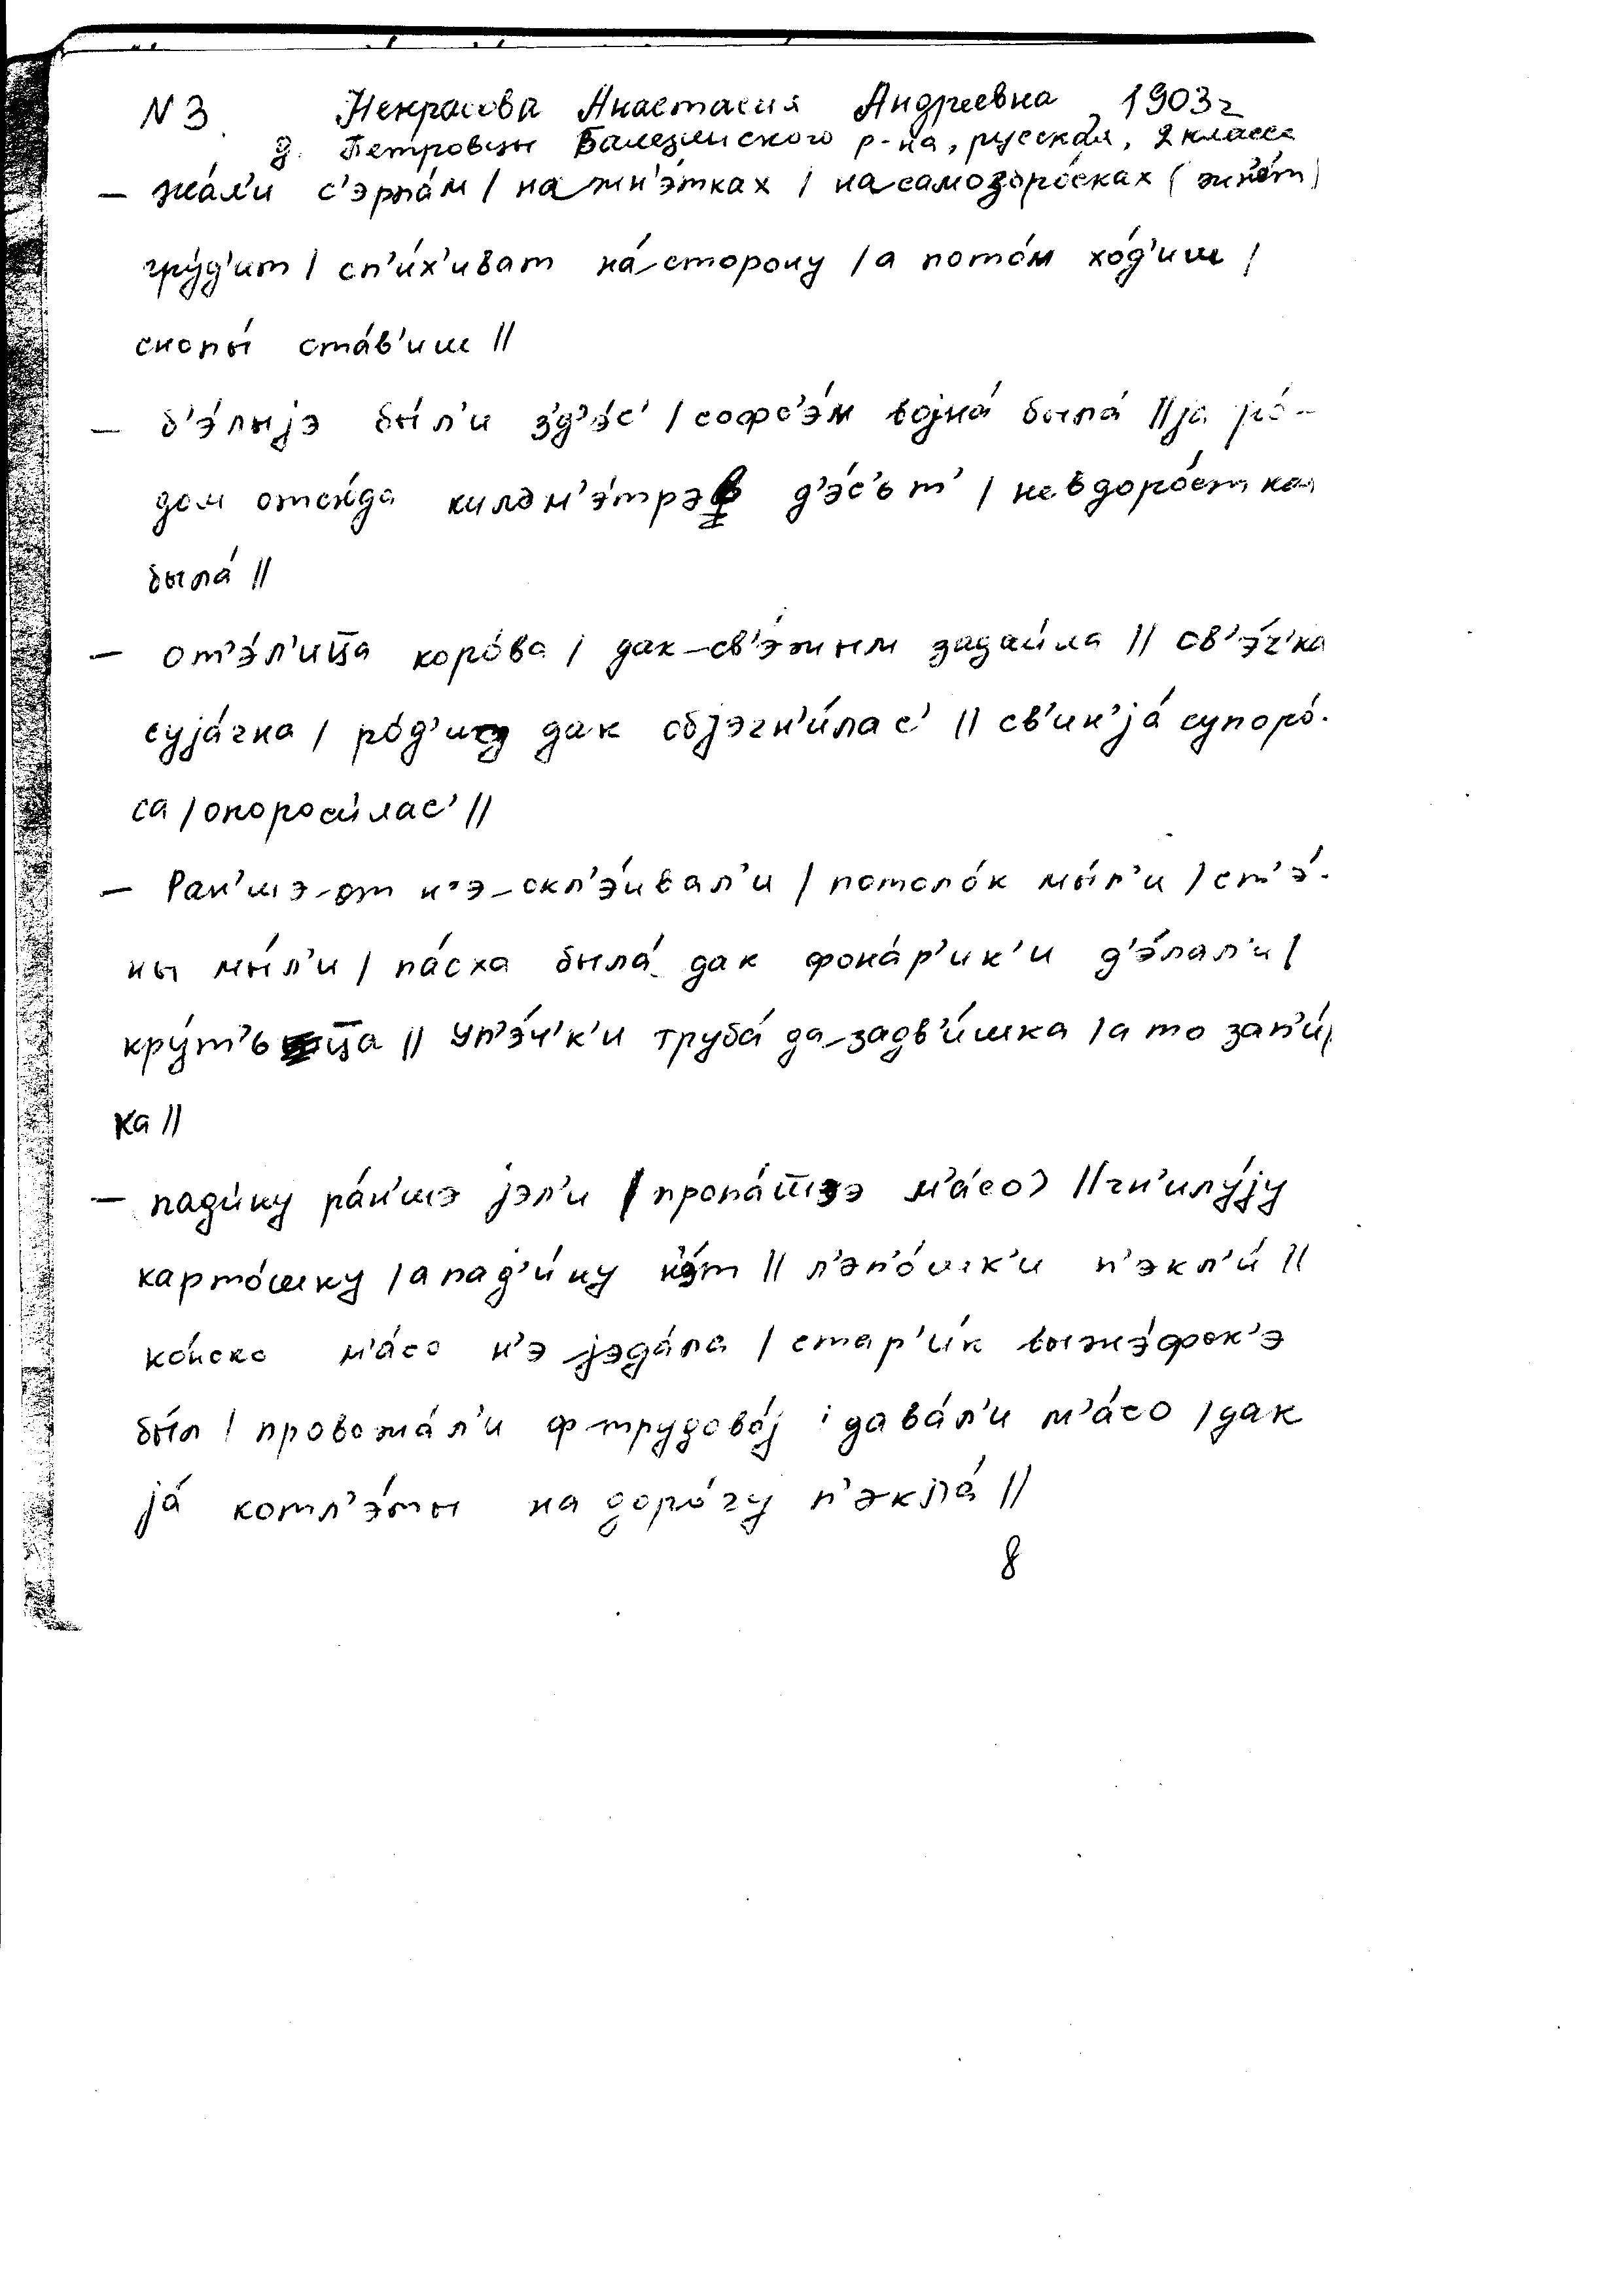 N 3. Некрасова Анастасия Андреевна 1903г
д. Петровцы Балезинского р-на, русская, 2 класса
– жа́л'и с'эрпа́м / на жн'э́тках / на самозбро́сках (жн'о́т)
гру́д'ит / сп'и́х'иват на́ сторону / а пото́м хо́д'иш /
снопы́ ста́в'иш //
– б'э́лыjэ бы́л'и з'д'э́с' / софс'э́м воjна́ была́ // jа ро́-
дом отсю́да килом'э́трэф д'э́с'ьт' / невдоро́стка
была́ //
– от'э́л'ица коро́ва / дак св'э́жым задаи́ла // ов'э́ч'ка
суjа́гна / ро́д'ит дак обjэгн'и́лас' // св'ин'jа́ супоро́-
са / опороси́лас' //
– Ран'шэ-от н'э-окл'э́ивал'и / потоло́к мы́л'и / ст'э́-
ны мы́л'и / па́сха была́ дак фона́р'ик'и д'э́лал'и /
кру́т'ьца // у п'э́ч'к'и труба́ да задв'и́шка / а то зап'и́р
ка //
– пади́ну ра́н'шэ jэл'и (пропа́шшэ м'а́со) // гн'илу́jу
карто́шку / а пад'и́ну н'э́т // л'эп'о́шк'и п'экл'и́ //
ко́нско м'а́со н'э jэда́ла / стар'и́к выжэ́фск'э
бы́л / провожа́л'и ф трудово́j / дава́л'и м'а́со / дак
jа́ котл'э́ты на доро́гу п'экла́ //
8